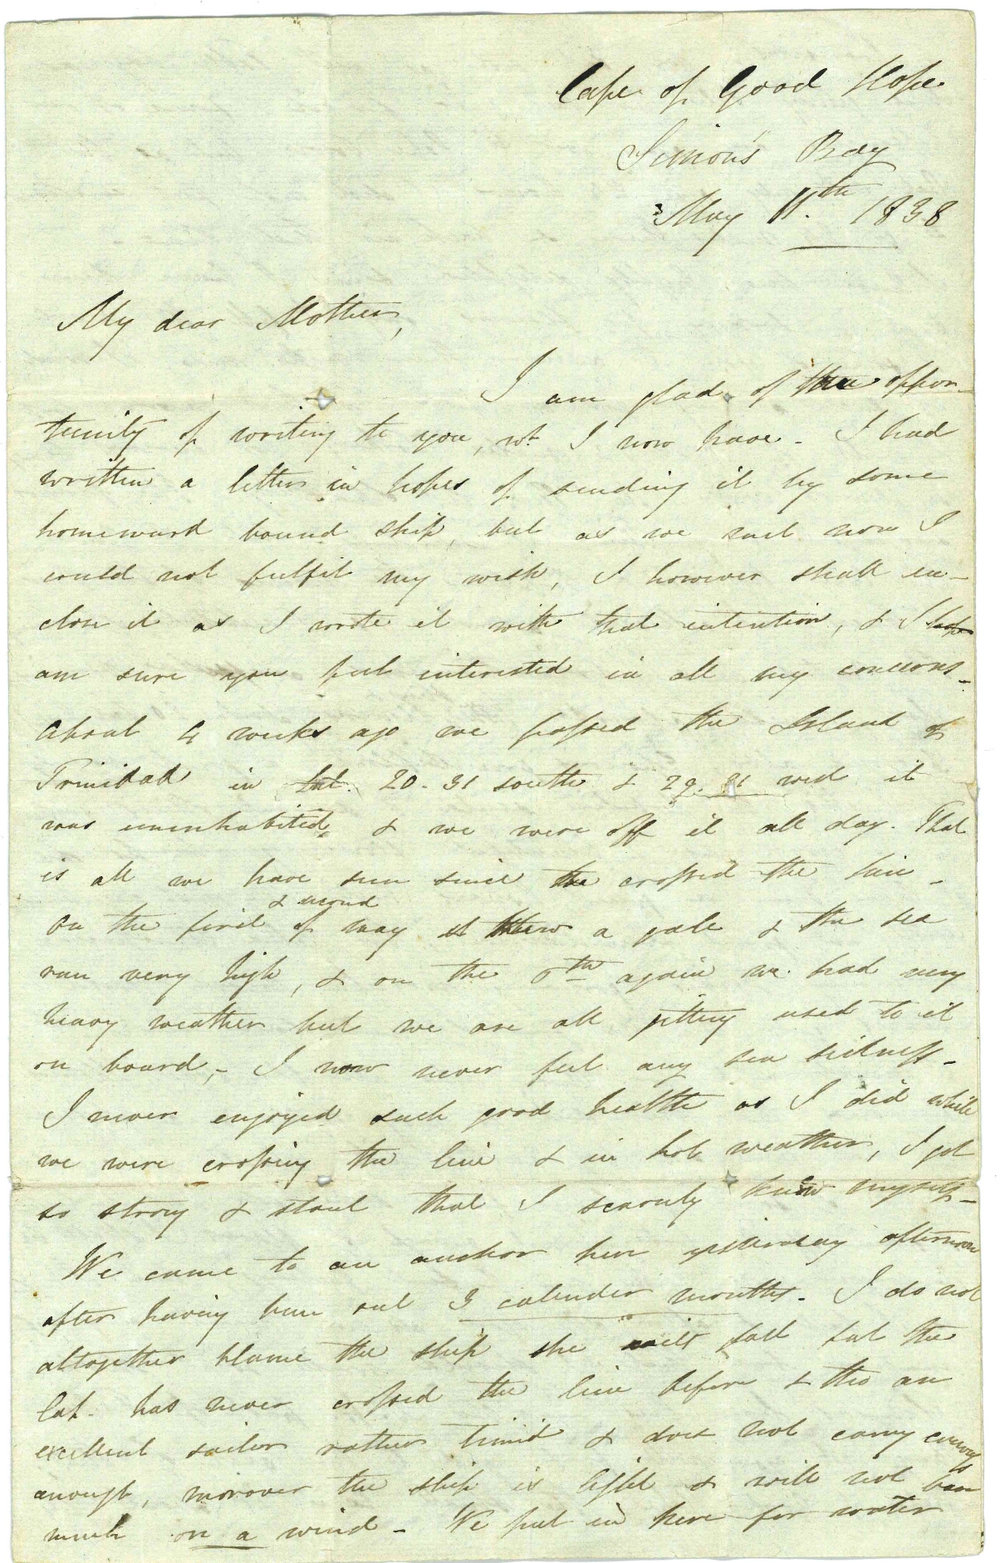 Cape of Good Hope
Simon's Bay
May 11.th 1838
My dear Mother,
I am glad of the oppor-
tunity of writing to you, wh. I now have - I had
written a letter in hopes of sending it by some
homeward bound ship, but as we met none I
could not fulfil my wish, I however shall en-
close it as I wrote it with that intention, & I
am sure you feel interested in all my concerns -
About 4 weeks ago we passed the Island of
Trinidad in lat. 20.31 south & 29.21 west it
was uninhabited, & we were off it all day. That
is all we have seen since we crossed the line -
On the first & second of may it blew a gale & the sea
ran very high, & on the 6th again we had very
heavy weather but we are all getting used to it
on board, - I now never feel any sea sickness -
I never enjoyed such good health as I did while
we were crossing the line & in hot weather, I got
so strong & stout that I scarcely knew myself -
We came to an anchor here yesterday afternoon
after having been out 3 calender months. I do not
altogether blame the ship she sails fast but the
Capt. has never crossed the line before & tho an
excellent sailor rather timid & does not carry canvas
enough, moreover the ship is light & will not bear
much on a wind - We put in here for water